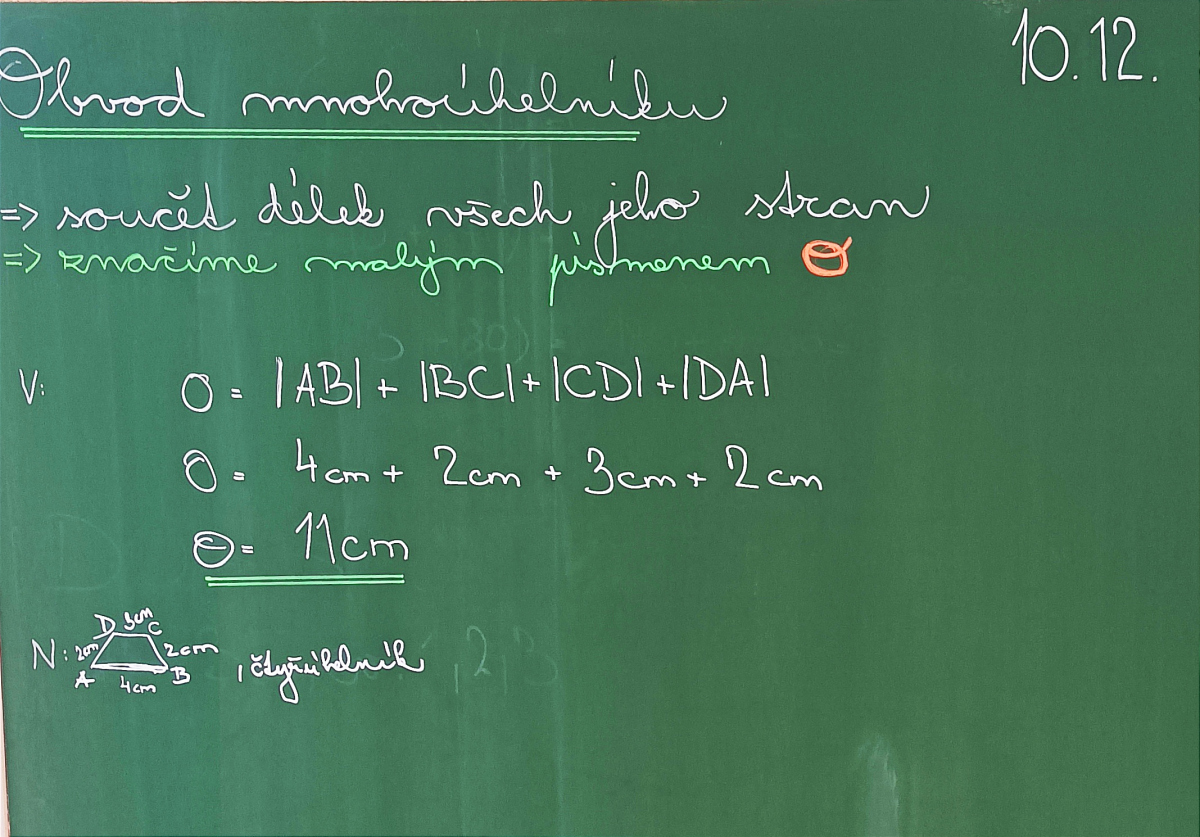 10.12.
Obvod mnohoúhelníku
=> součet délek všech jeho stran
=> značíme malým písmenem o
V: o = |AB| + |BC| + |CD| + |DA|
o = 4cm + 2cm + 3cm + 2cm
o = 11cm
D 3cm C
N: 2cm 2cm , čtyřúhelník
A 4cm B